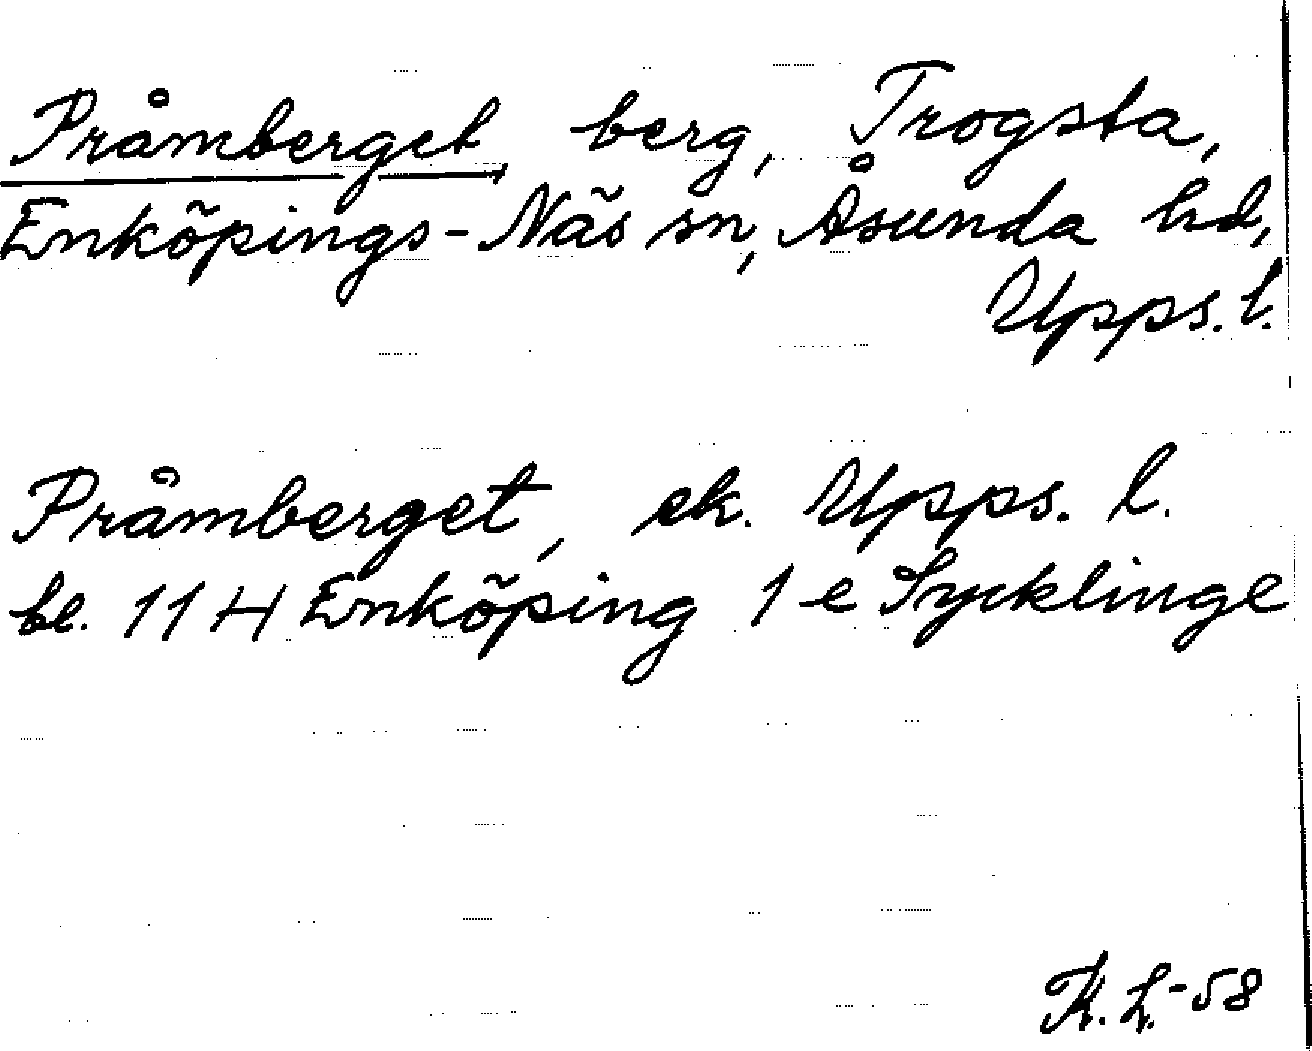 Pråmberget, berg, Trogsta,
Enköpings-Näs sn, Åsunda hd,
Upps. l.
Pråmberget, ek. Upps. l.
bl. 11 H Enköping 1 e Sycklinge
K. L.-58